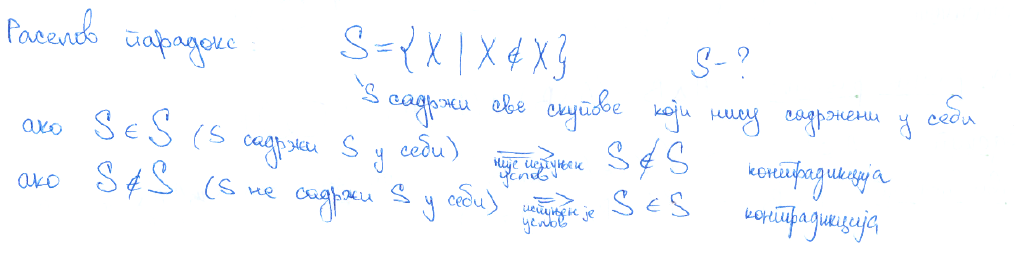 Раселов парадокс S = { X | X ∉ X } S - ?
S садржи све скупове који нису садржени у себи
ако S ∈ S (S садржи S у себи) ⟹ није испуњен услов S ∉ S контрадикција
ако S ∉ S (S не садржи S у себи) ⟹ испуњен је услов S ∈ S контрадикција